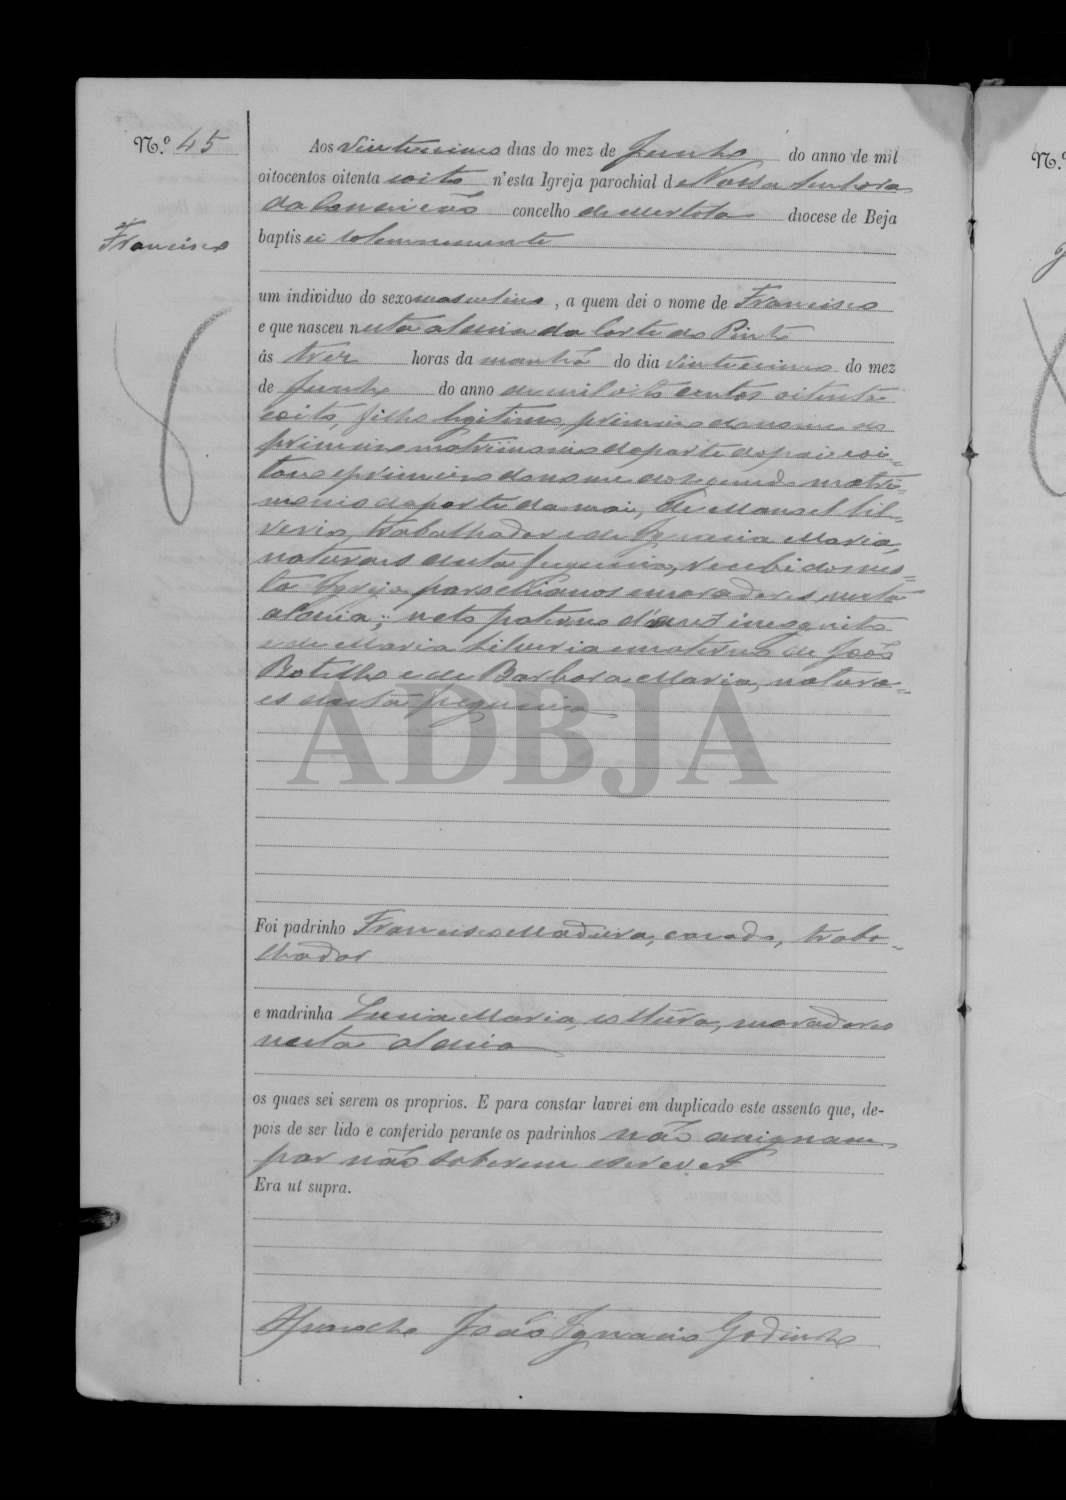 N.º 45
Francisco
Aos vinte e cinco dias do mez de Junho do anno de mil
oitocentos oitenta e oito n'esta Igreja parochial de Nossa Senhora
da Conceição concelho de Mertola diocese de Beja
baptisei solemnemente
um individuo do sexo masculino, a quem dei o nome de Francisco
e que nasceu nesta aldeia da Corte do Pinto
ás trez horas da manhã do dia vinte e cinco do mez
de Junho do anno de mil oito centos oitenta
e oito, filho legitimo, primeiro do nome do
primeiro matrimonio da parte do pai e oi-
tavo e primeiro do nome do segundo matri-
monio da parte da mai, de Manoel Sil-
verio, trabalhador e de Ignacia Maria,
naturaes desta freguesia, recebidos nes-
ta Igreja parochianos e moradores nesta
aldeia; neto paterno d'avô incognito
e de Maria Silveria e materno de João
Botelho e de Barbora Maria, natura-
es desta freguesia
ADBJA
Foi padrinho Francisco Madeira, casado, traba-
lhador
e madrinha Luzia Maria, solteira, moradores
nesta aldeia
os quaes sei serem os proprios. E para constar lavrei em duplicado este assento que, de-
pois de ser lido e conferido perante os padrinhos não assignam
por não saberem escrever
Era ut supra.
O Parocho João Ignacio Godinho
N.º